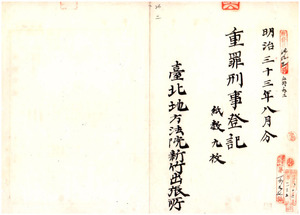 明治三十三年八月分
重罪刑事登記
紙數九枚
臺北地方法院新竹出張所